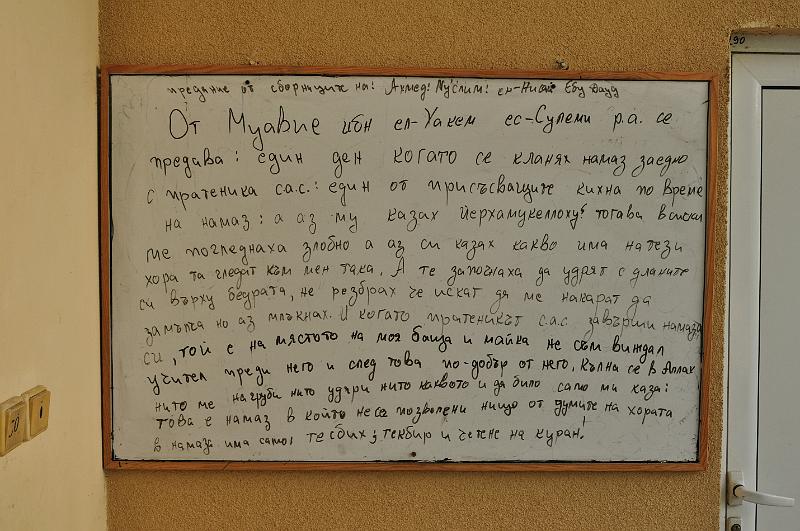 90
предание от сборниците на: Ахмед! Муслим! ен-Нисаи Ебу Дауд
От Муавие ибн ел-Хакем ес-Сулеми р.а. се
предава: един ден когато се кланях намаз заедно
с пратеника с.а.с.: един от присъсващите кихна по време
на намаз: а аз му казах Йерхамукеллоху! тогава всички
ме погледнаха злобно а аз си казах какво има на тези
хора та гледат към мен така. А те започнаха да удрят с дланите
си върху бедрата, не резбрах че искат да ме накарат да
замълча но аз млъкнах. И когато пратеникът с.а.с. завърши намаза
си, той е на мястото на моя баща и майка не съм виждал
учител преди него и след това по-добър от него, кълна се в Аллах
нито ме нагруби нито удари нито каквото и да било само ми каза:
това е намаз в който не са позволени нищо от думите на хората
в намаза има само: тесбих; текбир и четене на куран!